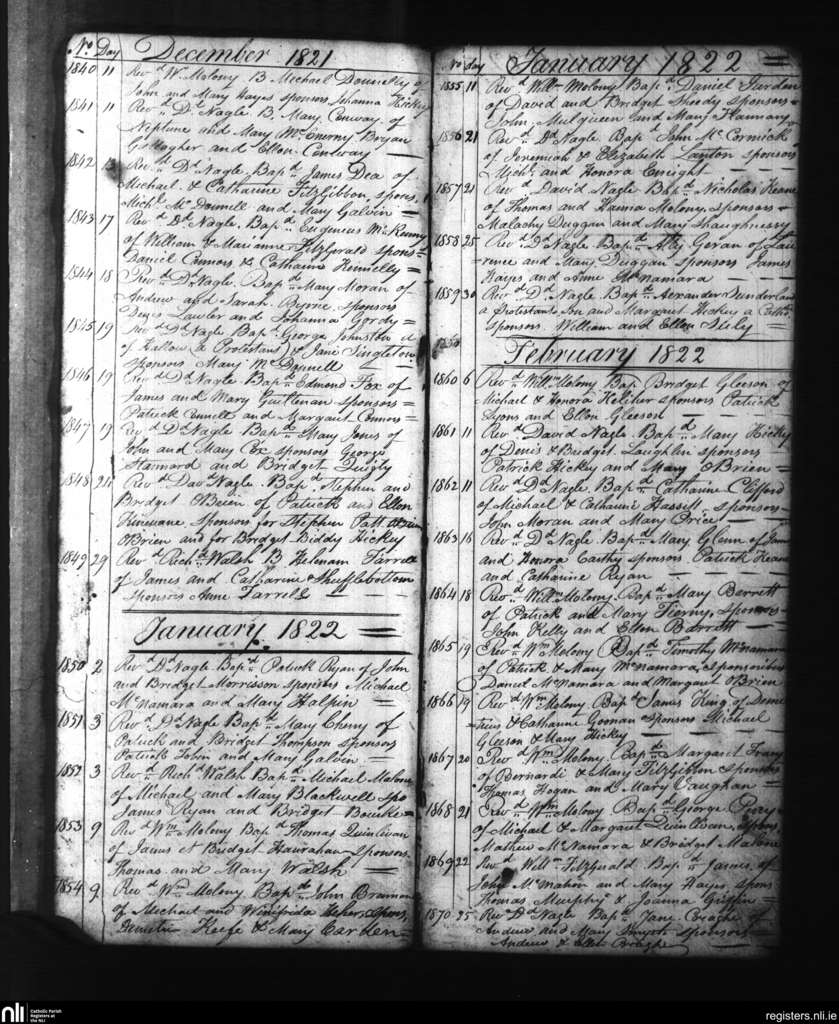 No. Day December 1821
1840 11 Revd. Wm. Molony B Michael Donnelly of
John and Mary Hayes sponsors Johanna Hickey
1841 11 Revd. Dd. Nagle B. Mary Conway of
Neptune and Mary McEnerny Bryan
Gallagher and Ellen Conway
1842 13 Revd. Dd. Nagle Bapd. James Dea of
Michael & Catharine FitzGibbon, spons.
Michl. McDonnell and Mary Galvin =
1843 17 Revd. Dd. Nagle, Bapd. Eugenius
of William & Marianne FitzGerald spons=
Daniel Connors & Catharine Kennelly =
1844 18 Revd. Dd. Nagle. Bapd. Mary Moran of
Andrew and Sarah Byrne sponsors
Denys Lawler and Johanna Gordy =
1845 19 Revd. Dd. Nagle Bapd. George Johnston
of Hallow (a Protestant) & Jane Singleton
sponsors Mary McDonnell
1846 19 Revd. Dd. Nagle Bapd. Edmond Fox of
James and Mary sponsors =
Patrick Connell and Margaret Connors =
1847 19 Revd. Dd. Nagle Bapd. Mary Jones of
John and Mary Cox sponsors George
Hannard and Bridget Quigly
1848 21 Revd. Dav Nagle Bapd. Stephen and
Bridget OBrien of Patrick and Ellen
Kinevane Sponsors for Stephen Patt
OBrien and for Bridget Biddy Hickey
1849 29 Revd. Richd. Walsh B Helenam Farrell
of James and Catharine Shufflebottom
sponsors Anne Farrell
January 1822 =
1850 2 Revd. Dd. Nagle Bapd. Patrick Ryan of John
and Bridget Morrisson sponsors Michael
McNamara and Mary Halpin =
1851 3 Revd. Dd. Nagle Bapd. Mary Cherry of
Patrick and Bridget Thompson sponsors
Patrick John and Mary Galvin
1852 3 Revd. Richd. Walsh Bapd. Michael Malone
of Michael and Mary Blackwell spo
James Ryan and Bridget Bourke
1853 9 Revd. Wm. Molony Bapd. Thomas Quinlivan
of James et Bridget Hanrahan sponsors
Thomas and Mary Walsh =
1854 9 Revd. Wm. Molony Bapd. John Brannan
of Michael and Winifrida spons.
Demetri Keefe & Mary Carlen =
No day January 1822 =
1855 11 Revd. Willm. Molony Bapd. Daniel
of David and Bridget Sheedy sponsors =
John Mulqueen and Mary Flannary
1856 21 Revd. Dd. Nagle Bapd. John McCormick
of Jeremiah & Elizabeth Layton sponsors
Michl. and Honora Enright
1857 21 Revd. David Nagle Bapd. Nicholas Keane
of Thomas and Hanna Molony, sponsors =
Malachy Duggan and Mary Shaughnessy
1858 25 Revd. Dd. Nagle Bapd. Aly Geran of Lau
rence and Mary Duggan sponsors James
Hayes and Anne McNamara
1859 30 Revd. Dd. Nagle Bapd. Alexander Sunderland
a Protestants Son and Margaret Hickey a Catho
sponsors William and Ellen
February 1822
1860 6 Revd. Willm. Molony Bap Bridget Gleeson of
Michael & Honora Heliher sponsors Patrick
Lyons and Ellen Gleeson
1861 11 Revd. David Nagle Bapd. Mary Hickey
of Denis & Bridget Laughlin sponsors
Patrick Hickey and Mary OBrien =
1862 11 Revd. Dd. Nagle Bapd. Catharine Clifford
of Michael & Catharine Hassitt sponsors =
John Moran and Mary Price
1863 16 Revd. Dd. Nagle Bapd. Mary Glenn of James
and Honora Carthy sponsors Patrick Keane
and Catharine Ryan
1864 18 Revd. Willm. Molony. Bapd. Mary Barrett
of Patrick and Mary Tierny, sponsors =
John Kelly and Ellen Barrett
1865 19 Revd. Wm. Molony Bapd. Timothy McNamara
of Patrick & Mary McNamara, Sponsoribus
Daniel McNamara and Margaret OBrien
1866 19 Revd. Wm. Molony Bapd. James King of Deme
trius & Catharine Gorman sponsors Michael
Gleeson & Mary Hickey
1867 20 Revd. Wm. Molony Bapd. Margaret
of Bernardi & Mary FitzGibbon sponsors
Thomas Hogan and Mary Vaughan =
1868 21 Revd. Wm. Molony Bapd. George
of Michael & Margaret Quinlivan, spons
Mathew McNamara & Bridget Malone
1869 22 Revd. Willm. FitzGerald Bapd. James of
John McMahon and Mary Hayes spons
Thomas Murphy & Joanna Griffin =
1870 25 Revd. Dd. Nagle Bapd. Jane of
Andrew and Mary Smyth sponsors =
Andrew & Ellen
nli Catholic Parish
Registers at
the NLI
registers.nli.ie